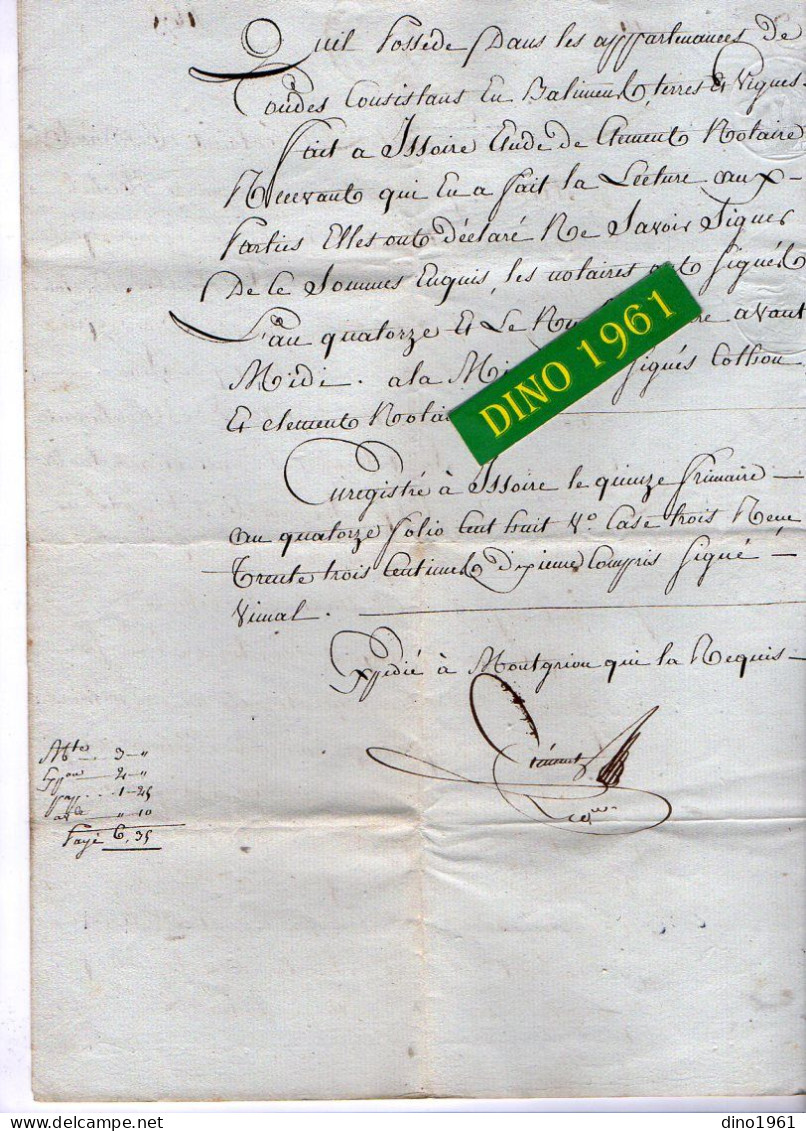 Quil Possede Dans les appartenances de
Coudes Consistans En Batiment, terres Et Vignes.
fait a Issoire Etude de Clement Notaire
Recevant qui En a fait la Lecture aux
Parties Elles ont déclaré Ne Savoir Signer
De Ce Sommes Enquis, les notaires ont Signé
L'an quatorze Et Le avant
Midi. a la Signés Cothon
Et Clement
DINO 1961
Enregistré à Issoire le quinze frimaire
an quatorze folio Cent huit Vo. Case trois Recu
trente trois Centimes dixieme Compris Signé
Vimal.
Expedié à Montgrion qui la Requis
Clément
Mte 3 "
Exp on 2 "
pap. 1 25
" 10
Payé 6, 35
dino1961